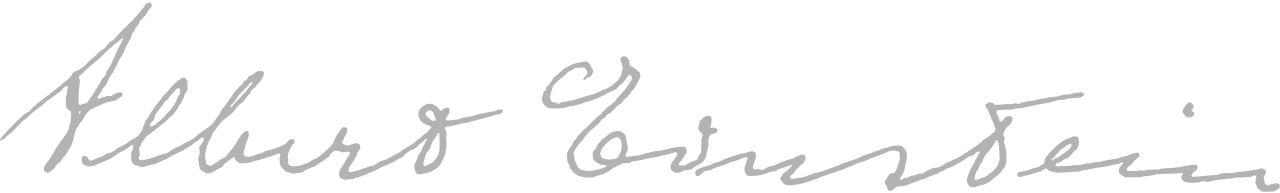 Albert Einstein